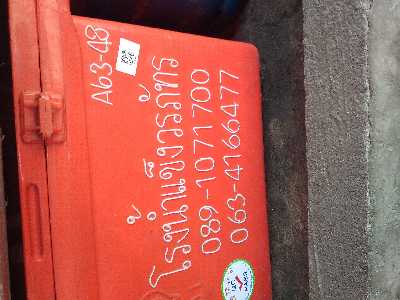 A63-48
โรงน้ำแข็งวรภัทร
089-1071700
063-4166477